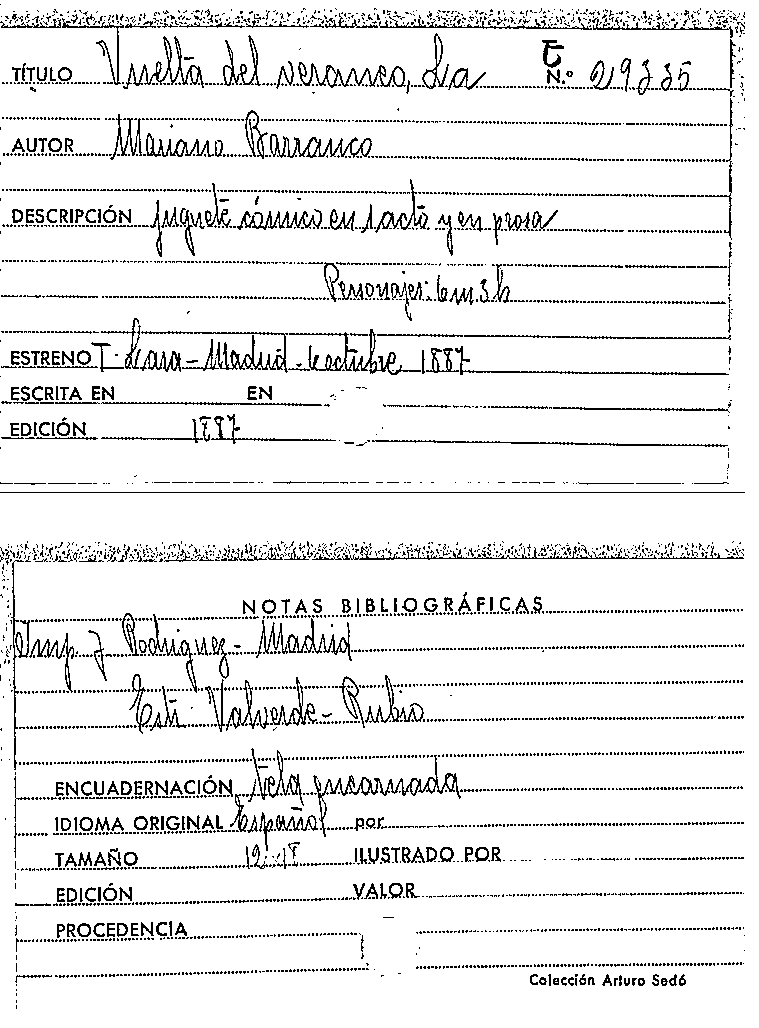 TÍTULO Vuelta del veraneo, La
N.º 29335
AUTOR Mariano Barranco
DESCRIPCIÓN juguete cómico en 1 acto y en prosa
Personajes: 6 m. 3 h
ESTRENO T. Lara - Madrid - 6 octubre 1887
ESCRITA EN EN
EDICIÓN 1887
NOTAS BIBLIOGRÁFICAS
Imp. J Rodriguez - Madrid
Est: Valverde - Rubio
ENCUADERNACIÓN tela encarnada
IDIOMA ORIGINAL Español por
TAMAÑO ILUSTRADO POR
EDICIÓN VALOR
PROCEDENCIA
Colección Arturo Sedó